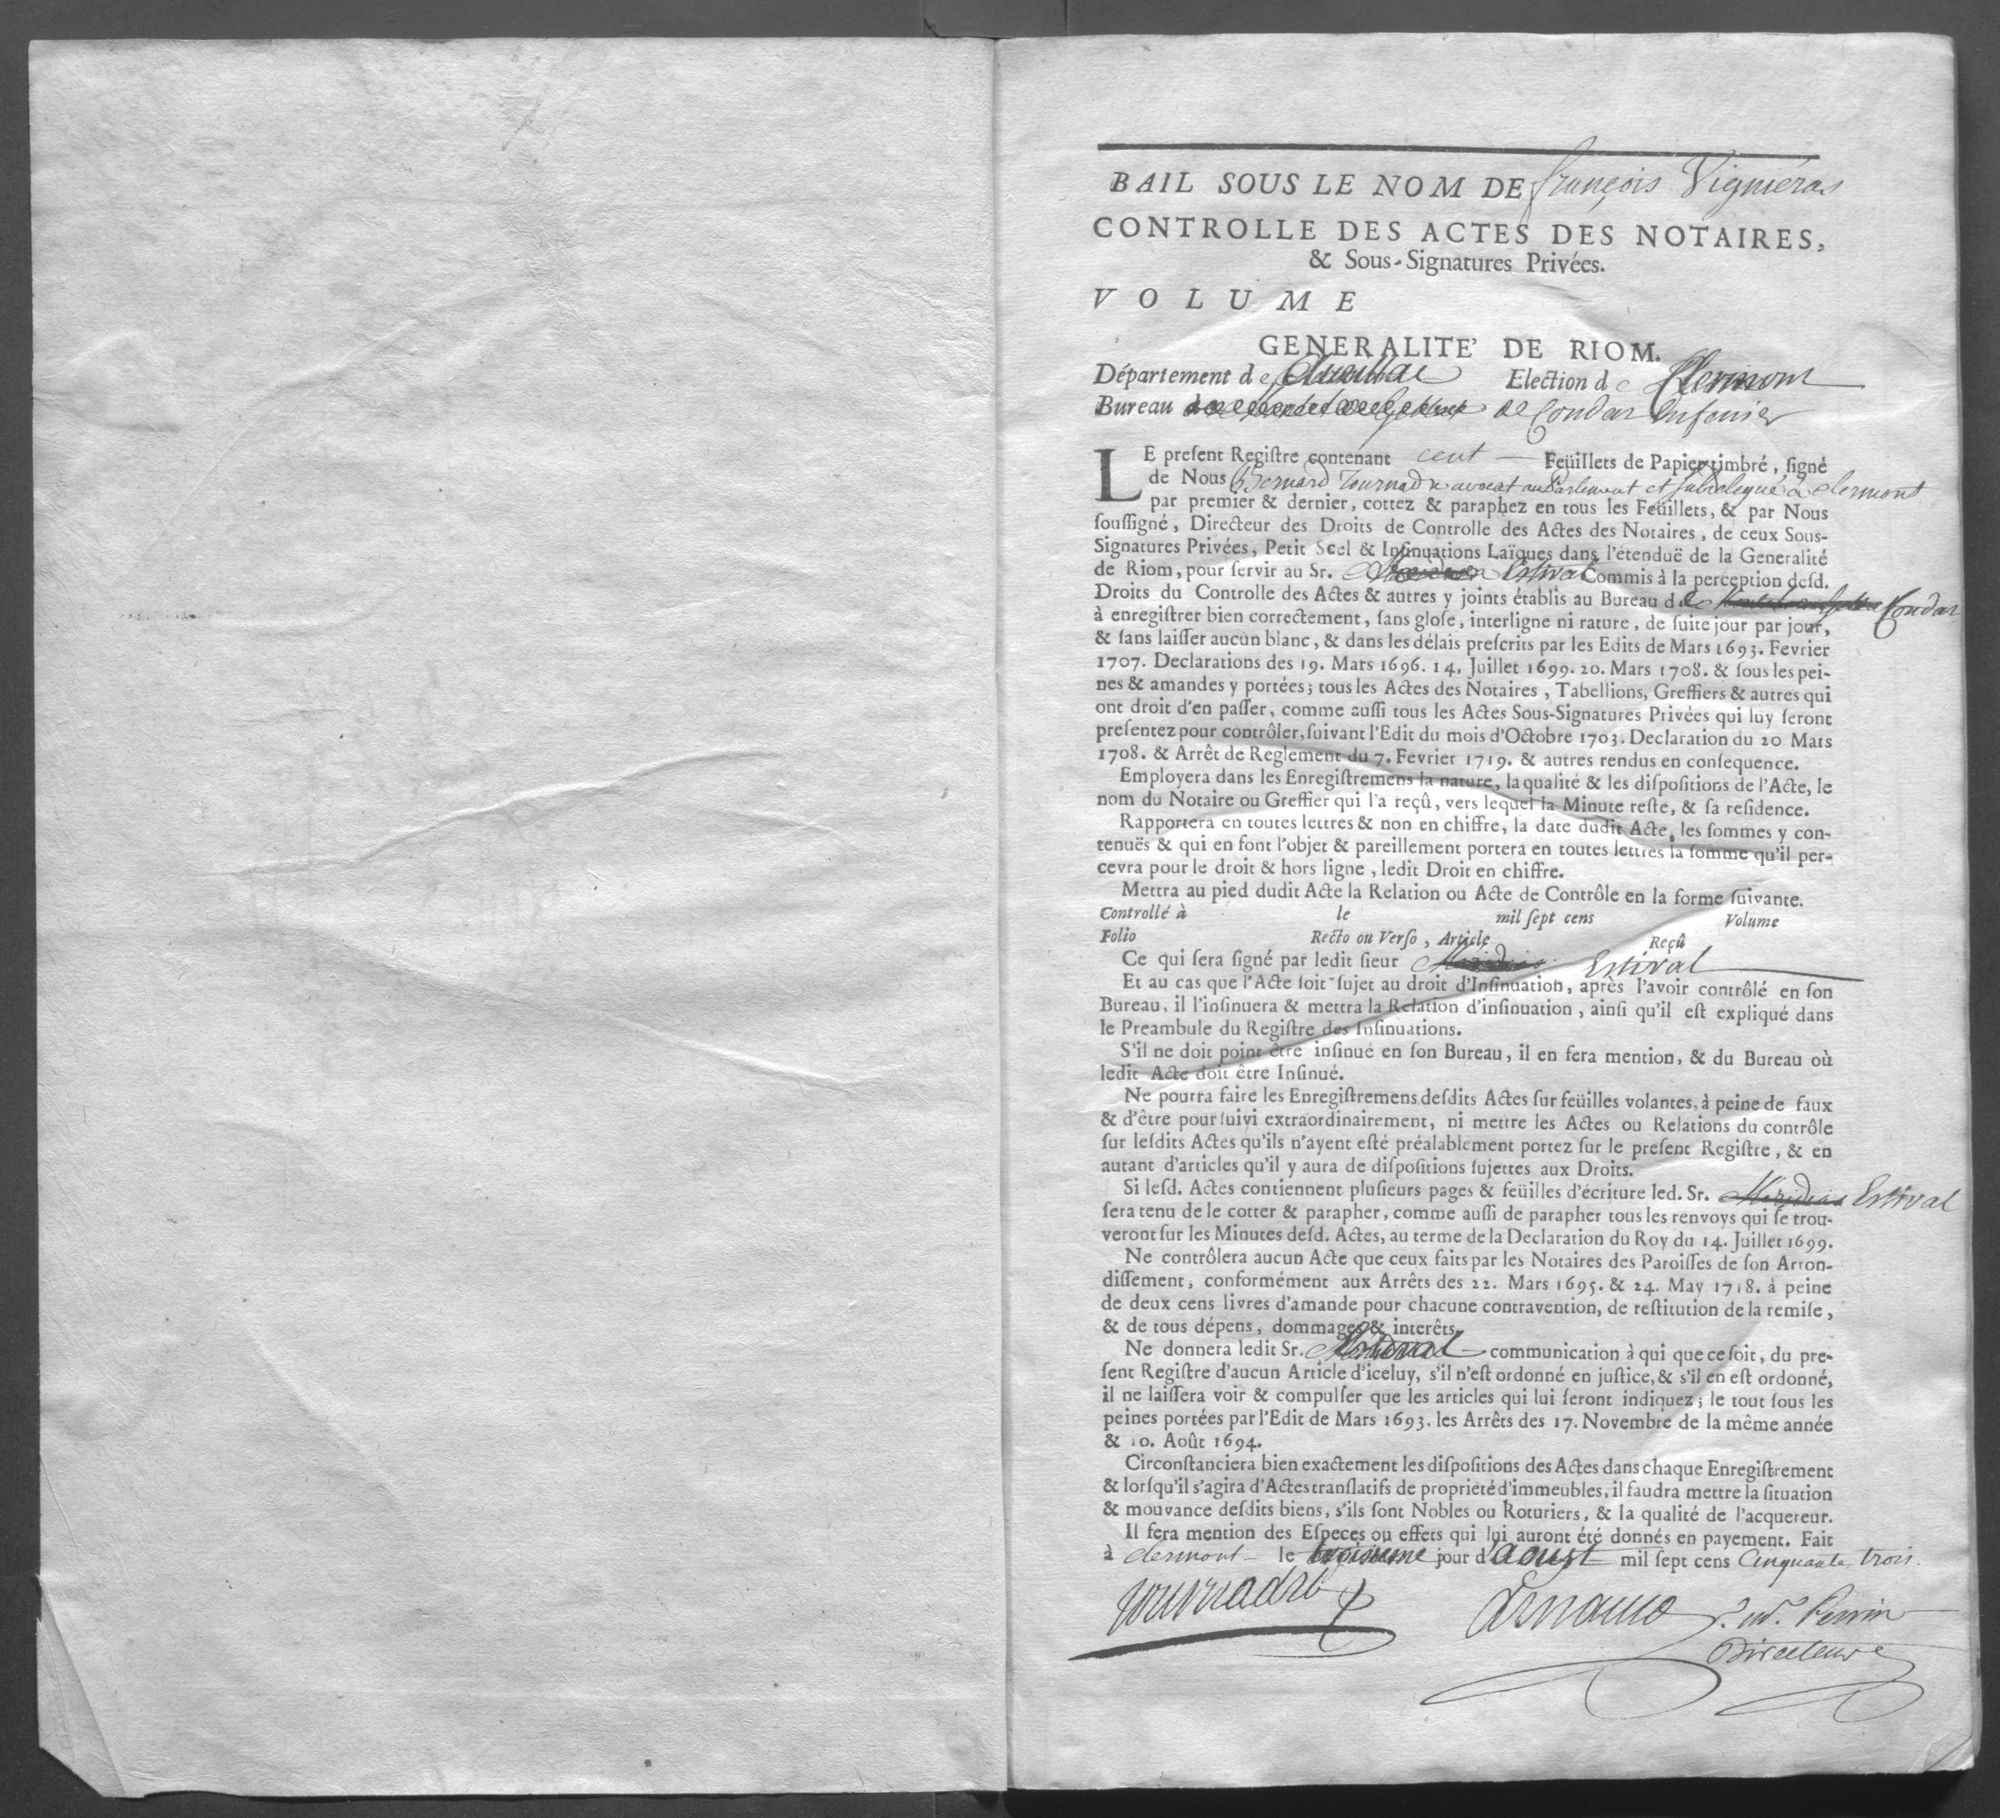 BAIL SOUS LE NOM DE françois Vignieras
CONTROLLE DES ACTES DES NOTAIRES,
& Sous-Signatures Privées.
VOLUME
GENERALITE' DE RIOM.
Département de Election de Clermont
Bureau de Condat
LE preſent Regiſtre contenant cent Feüillets de Papier timbré, ſigné
de Nous Bernard Tournadre avocat au Parlement et subdelegué à clermont
par premier & dernier, cottez & paraphez en tous les Feüillets, & par Nous
ſouſſigné, Directeur des Droits de Controlle des Actes des Notaires, de ceux Sous-
Signatures Privées, Petit Scel & Inſinuations Laïques dans l'étenduë de la Generalité
de Riom, pour ſervir au Sr. Estival Commis à la perception deſd.
Droits du Controlle des Actes & autres y joints établis au Bureau de Condat
à enregiſtrer bien correctement, ſans gloſe, interligne ni rature, de ſuite jour par jour,
& ſans laiſſer aucun blanc, & dans les délais preſcrits par les Edits de Mars 1693. Fevrier
1707. Declarations des 19. Mars 1696. 14. Juillet 1699. 20. Mars 1708. & ſous les pei-
nes & amandes y portées; tous les Actes des Notaires, Tabellions, Greffiers & autres qui
ont droit d'en paſſer, comme auſſi tous les Actes Sous-Signatures Privées qui luy ſeront
preſentez pour contrôler, ſuivant l'Edit du mois d'Octobre 1703. Declaration du 20 Mars
1708. & Arrêt de Reglement du 7. Fevrier 1719. & autres rendus en conſequence.
Employera dans les Enregiſtremens la nature, la qualité & les diſpoſitions de l'Acte, le
nom du Notaire ou Greffier qui l'a reçû, vers lequel la Minute reſte, & ſa reſidence.
Rapportera en toutes lettres & non en chiffre, la date dudit Acte, les ſommes y con-
tenuës & qui en font l'objet & pareillement portera en toutes lettres la ſomme qu'il per-
cevra pour le droit & hors ligne, ledit Droit en chiffre.
Mettra au pied dudit Acte la Relation ou Acte de Contrôle en la forme ſuivante.
Controllé à le mil ſept cens Volume
Folio Recto ou Verſo, Article Reçû
Ce qui ſera ſigné par ledit ſieur Estival
Et au cas que l'Acte ſoit ſujet au droit d'Inſinuation, après l'avoir contrôlé en ſon
Bureau, il l'inſinuera & mettra la Relation d'inſinuation, ainſi qu'il eſt expliqué dans
le Preambule du Regiſtre des Inſinuations.
S'il ne doit point être inſinué en ſon Bureau, il en fera mention, & du Bureau où
ledit Acte doit être Inſinué.
Ne pourra faire les Enregiſtremens deſdits Actes ſur feüilles volantes, à peine de faux
& d'être pourſuivi extraordinairement, ni mettre les Actes ou Relations du contrôle
ſur leſdits Actes qu'ils n'ayent eſté préalablement portez ſur le preſent Regiſtre, & en
autant d'articles qu'il y aura de diſpoſitions ſujettes aux Droits.
Si leſd. Actes contiennent pluſieurs pages & feüilles d'écriture led. Sr. Estival
ſera tenu de le cotter & parapher, comme auſſi de parapher tous les renvoys qui ſe trou-
veront ſur les Minutes deſd. Actes, au terme de la Declaration du Roy du 14. Juillet 1699.
Ne contrôlera aucun Acte que ceux faits par les Notaires des Paroiſſes de ſon Arron-
diſſement, conformément aux Arrêts des 22. Mars 1695. & 24. May 1718. à peine
de deux cens livres d'amande pour chacune contravention, de reſtitution de la remiſe,
& de tous dépens, dommages & interêts.
Ne donnera ledit Sr. Estival communication à qui que ce ſoit, du pre-
ſent Regiſtre d'aucun Article d'iceluy, s'il n'eſt ordonné en juſtice, & s'il en eſt ordonné,
il ne laiſſera voir & compulſer que les articles qui lui ſeront indiquez; le tout ſous les
peines portées par l'Edit de Mars 1693. les Arrêts des 17. Novembre de la même année
& 10. Août 1694.
Circonſtanciera bien exactement les diſpoſitions des Actes dans chaque Enregiſtrement
& lorſqu'il s'agira d'Actes tranſlatifs de proprieté d'immeubles, il faudra mettre la ſituation
& mouvance deſdits biens, s'ils ſont Nobles ou Roturiers, & la qualité de l'acquereur.
Il fera mention des Eſpeces ou effets qui lui auront été donnés en payement. Fait
à clermont le troisieme jour d'aoust mil ſept cens Cinquante trois.
Tournadre Arnaud Perrin
Directeur